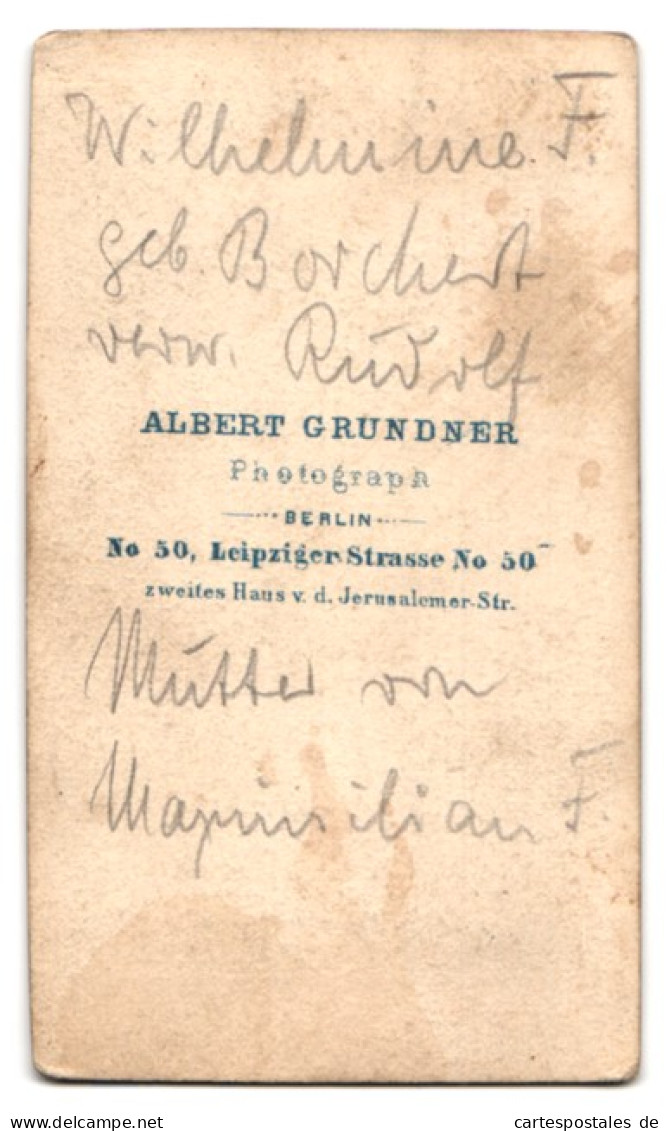 Wilhelmine F.
geb. Borchert
verw. Rudolf
ALBERT GRUNDNER
Photograph
BERLIN
No 50, Leipziger Strasse No 50
zweites Haus v. d. Jerusalemer-Str.
Mutter von
Maximilian F.
www.delcampe.net
cartespostales de